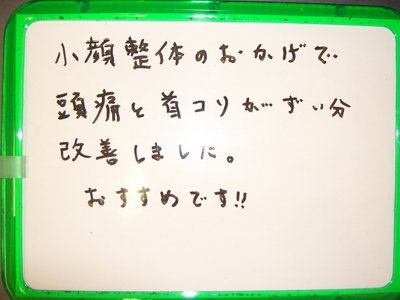 小顔整体のおかげで
頭痛と首コリがずい分
改善しました。
おすすめです!!